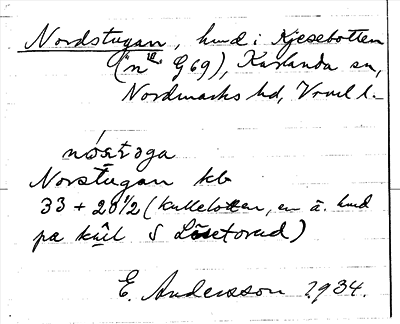 Nordstugan, hmd i Kjesebotten
("n" G69), Karlanda sn,
Nordmarks hd, Vrml l.
nơstoga
Norstugan kb
33 + 20½ (Kullebotten, en ä. hmd
på kúl S Låsetorud)
E. Andersson 1934.